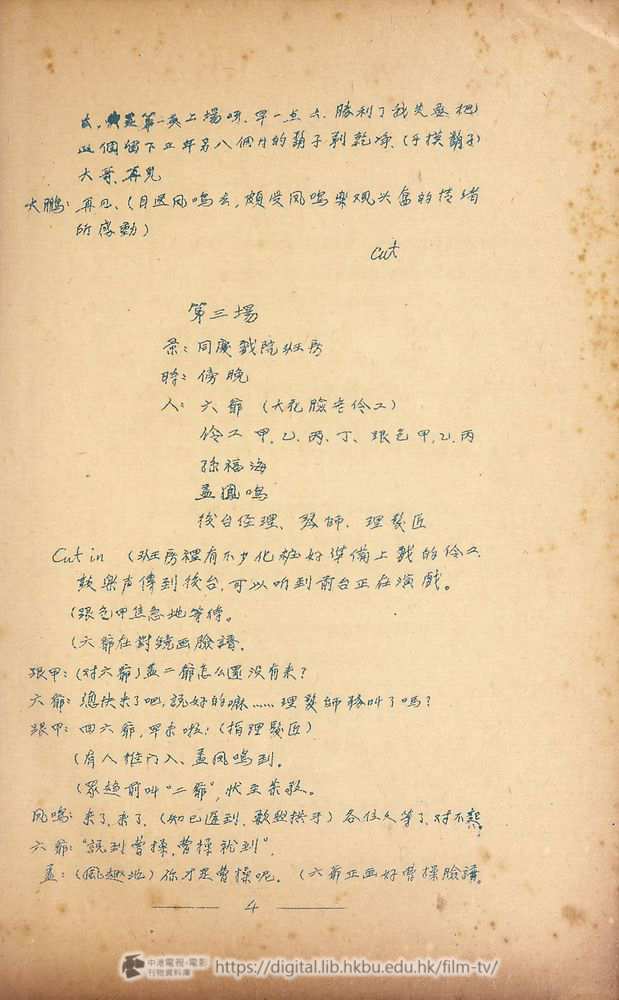 去，第一次上場嘛，早一点去，勝利了我先要把
这個留下五年另八個月的鬍子剃乾净，（手摸鬍子）
大哥，再見
大鵬：再見，（目送凤鳴去，頗受凤鳴樂观兴奮的情绪
所感動）
cut
第三場
景：同慶戲院班房
時：傍晚
人：六爺（大花臉老伶工）
伶工甲，乙、丙、丁、跟包甲，乙、丙
孫福海
孟鳳鳴
後台经理、琴師、理髮匠
Cut in （班房裡有不少化粧好準備上戲的伶工
鼓樂声傳到後台，可以听到前台正在演戲。
（跟包甲焦急地等待。
（六爺在對鏡画臉譜，
跟甲：（对六爺）孟二爺怎么還没有来？
六爺：總快来了吧，説好的嘛……理髮師務叫了嗎？
跟甲：回六爺，早来啦！（指理髮匠）
（有人推门入、孟凤鳴到。
（眾趋前叫“二爺”，状至恭敬。
凤鳴：来了，来了、（知已遲到、歉然拱手）各位久等了，对不起。
六爺：“説到曹操，曹操就到”，
孟：（風趣地）你才是曹操呢。（六爺正画好曹操臉譜。
4
中港電視·電影
刊物資料庫
https://digital.lib.hkbu.edu.hk/film-tv/